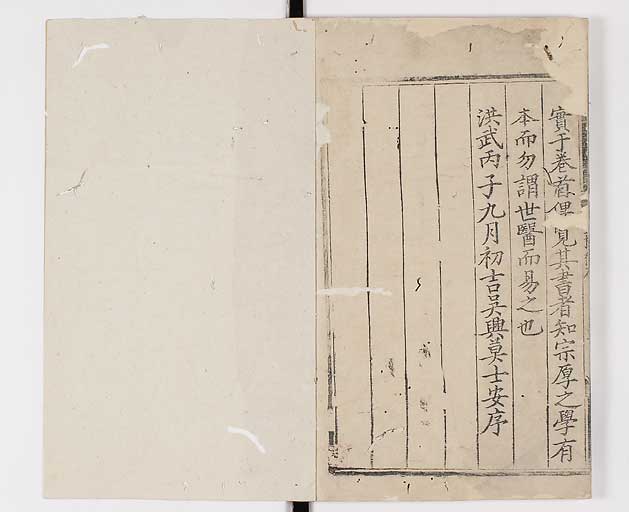 實于卷首俾覓其書者知宗厚之學有
本而勿謂世醫而易之也
洪武丙子九月初吉吳興莫士安序